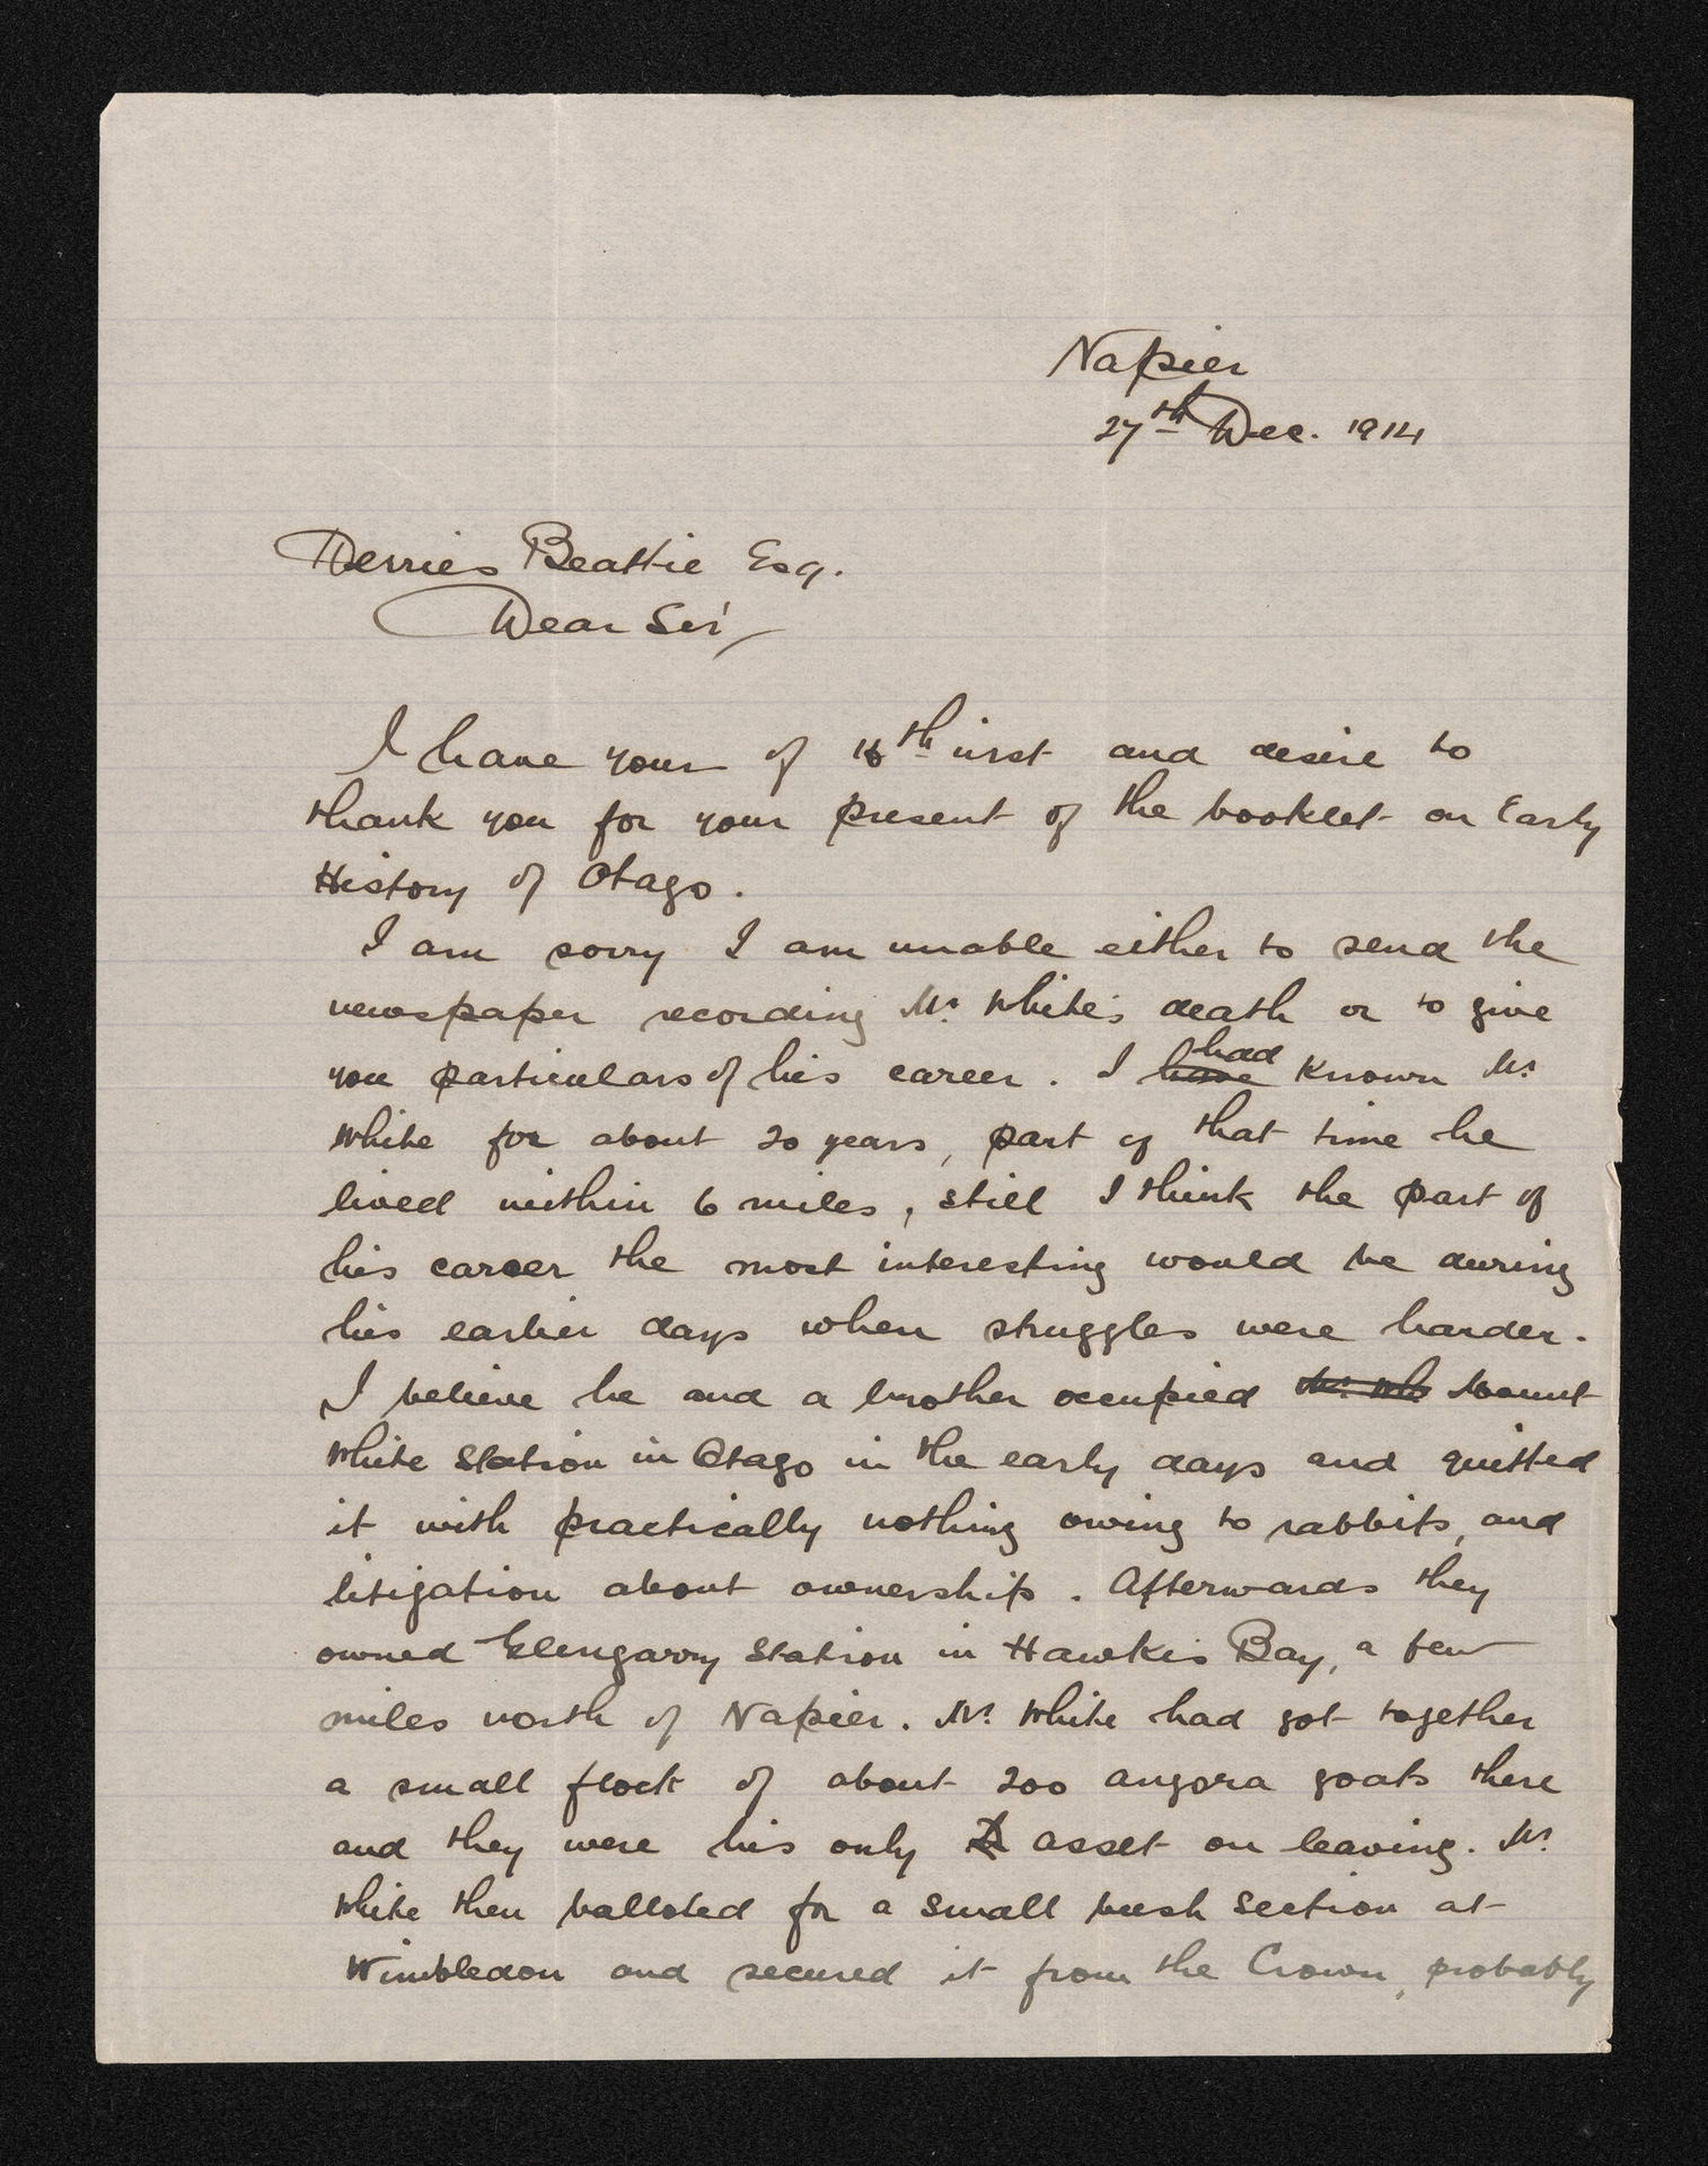 Napier
27th Dec. 1914
Herries Beattie Esq.
Dear Sir
I have your of 18th inst and desire to
thank you for your present of the booklet on Early
History of Otago.
I am sorry I am unable either to send the
newspaper recording Mr White's death or to give
you particulars of his career. I have had known Mr
White for about 20 years, part of that time he
lived within 6 miles, still I think the part of
his career the most interesting would be during
his earlier days when struggles were harder.
I believe he and a brother occupied Mr Wh Mount
White Station in Otago in the early days and quitted
it with practically nothing owing to rabbits, and
litigation about ownership. Afterwards they
owned Glengarry Station in Hawke's Bay, a few
miles north of Napier. Mr White had got together
a small flock of about 200 angora goats there
and they were his only asset on leaving. Mr
White then balloted for a small bush section at
Wimbledon and secured it from the Crown, probably